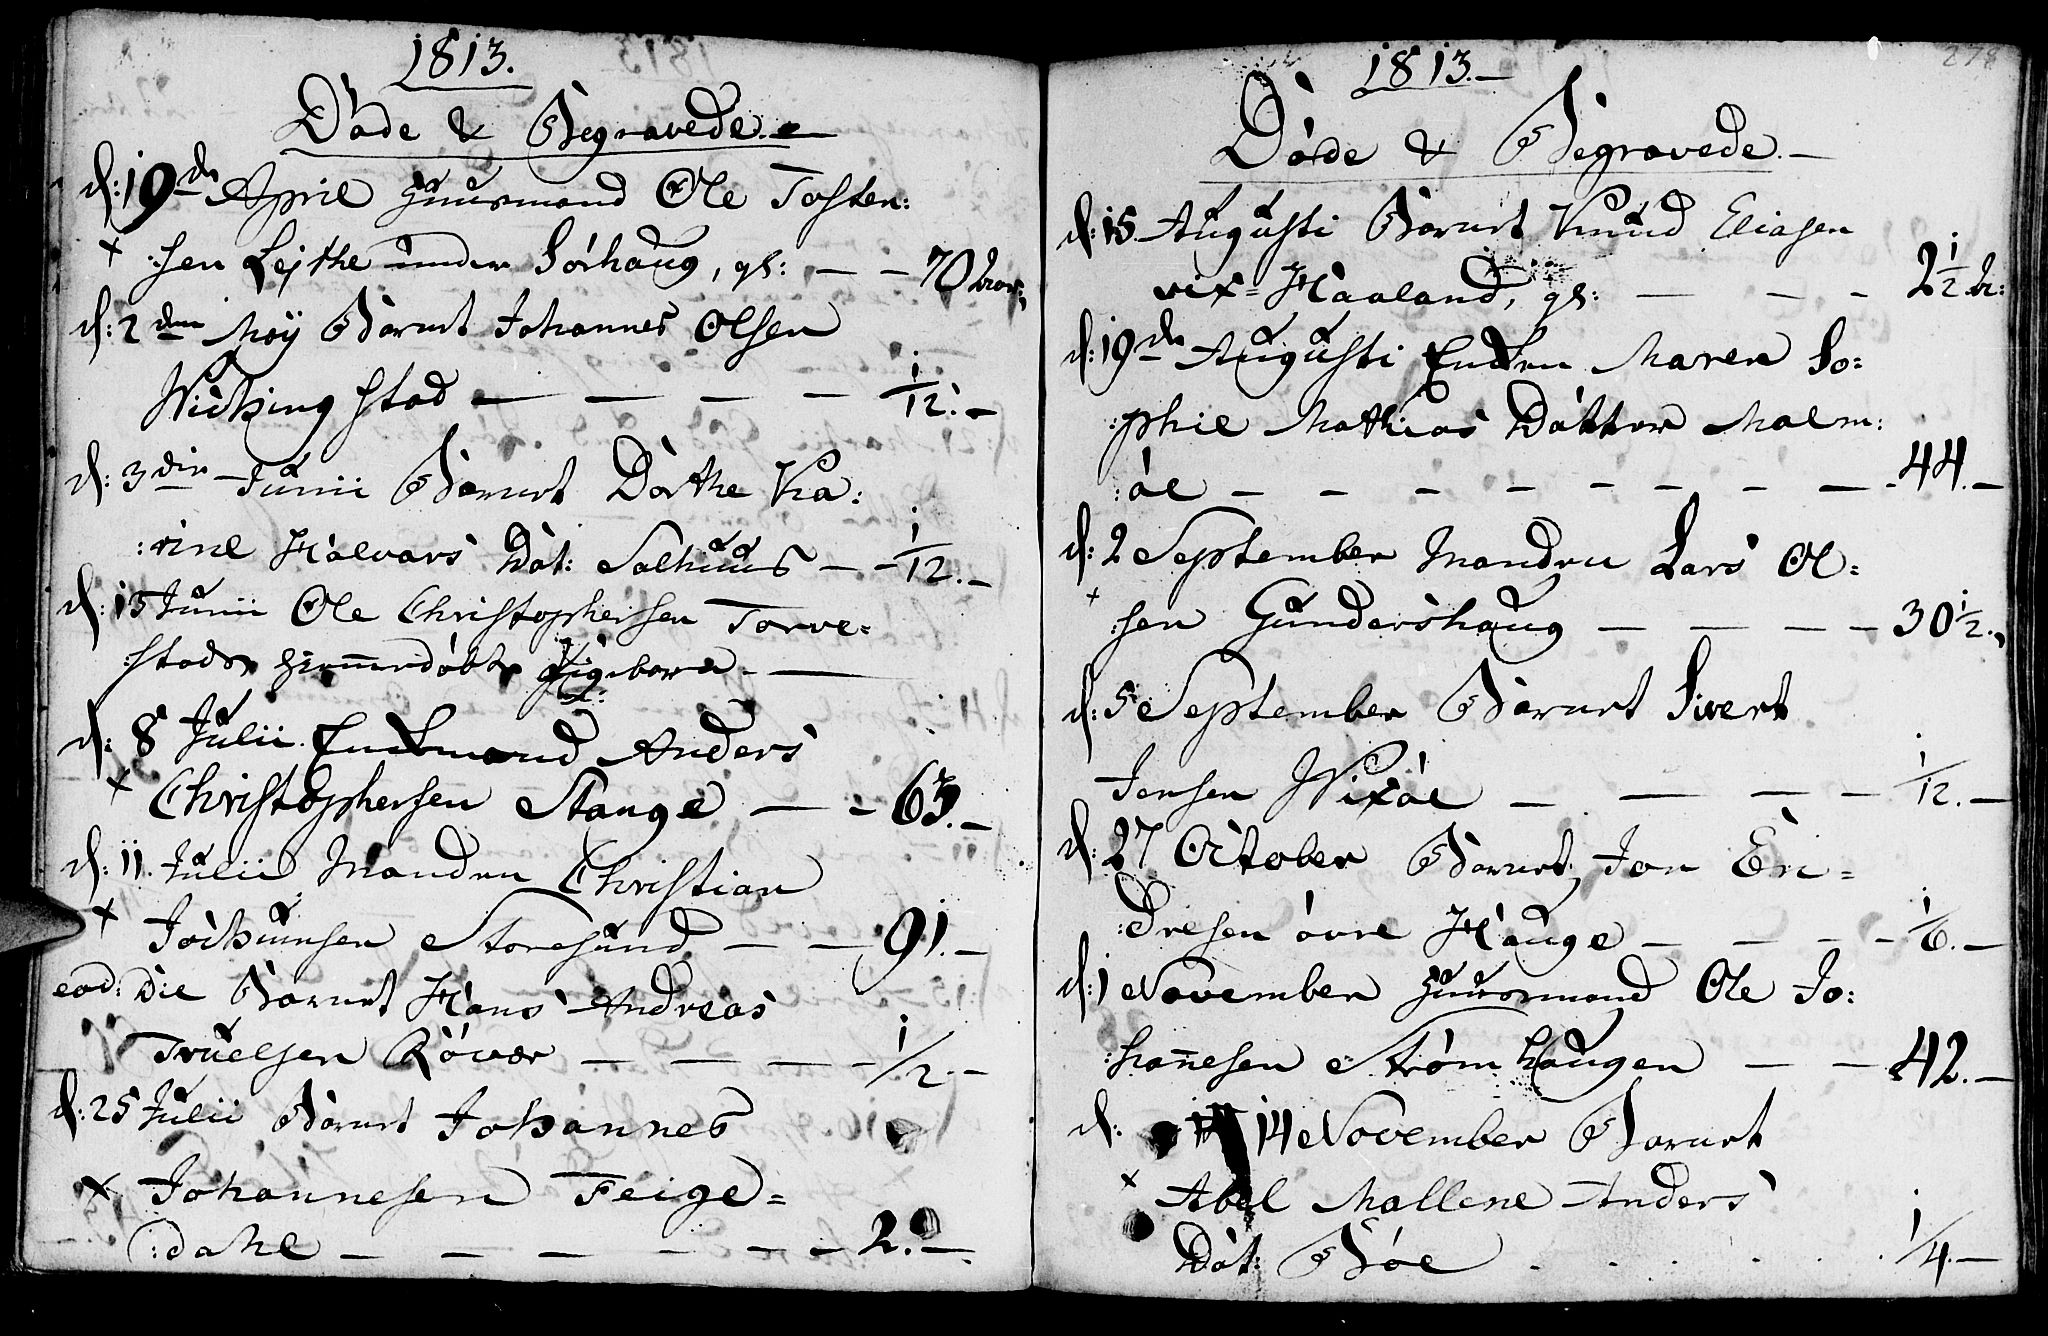 1813.
Døde & Begravede.
d: 19de April Huusmand Ole Tosten:
:sen Lejthe under Sørhaug, gl: — — 70 aar.
d: 2den Maÿ Barnet Johannes Olsen
Wichingstad — — — — 1/12. —
d: 3die Junii Barnet Dorthe Ka:
:rine Halvors Dat: Salhuus — — 1/12. —
d: 13 Junii Ole Christophersen Torve=
:stads hiemmedøbte Pigebarn —
d: 8 Julii. Enkemand Anders
+ Christophersen Stange — — 63. —
d: 11. Julii Manden Christian
+ Jochumsen Storesund — — 91. —
eod: die Barnet Hans Andreas
Truelsen Røvær — — — — 1/2. —
d: 25 Julii Barnet Johannes
+ Johannesen Feige=
:dahl — — — — — — 2. —
278
1813. —
Døde & Begravede. —
d: 15 Augusti Barnet Knud Eliasen
vix= Haaland, gl: — — — 2 1/2 Ar:
d: 19de Augusti Enken Maren So:
:phie Mathias Datter Malm:
:øe — — — — — — — — 44. —
d: 2 September Manden Lars Ol=
+ :sen Gundershaug — — — — 30 1/2.
d: 5 September Barnet Sivert
Jensen Wixøe — — — — 1/12. —
d: 27 October Barnet Jon En=
:dresen øvre Hauge — — — — 1/6. —
d: 1 November Huusmand Ole Jo:
:hannesen Strømhaugen — — 42. —
d: 14 November Barnet
+ Abel Mallene Anders
Dat: Bøe . . . . . 1/4. —